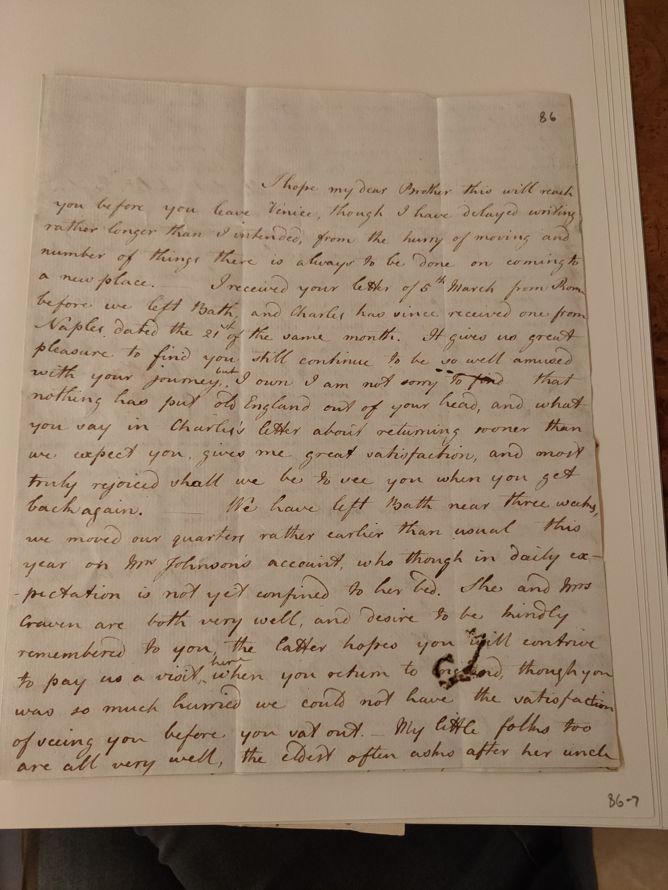 86
I hope my dear Brother this will reach
you before you leave Venice, though I have delayed writing
rather longer than I intended, from the hurry of moving and
number of things there is always to be done on coming to
a new place. I received your letter of 5th March from Rome
before we left Bath, and Charles has since received one from
Naples dated the 21st of the same month. It gives us great
pleasure to find you still continue to be so well amused
with your journey, but I own I am not sorry to find that
nothing has put old England out of your head, and what
you say in Charles's letter about returning sooner than
we expect you, gives me great satisfaction, and most
truly rejoiced shall we be to see you when you get
back again. — We have left Bath near three weeks,
we moved our quarters rather earlier than usual this
year on Mrs Johnson's account, who though in daily ex-
-pectation is not yet confined to her bed. She and Mrs
Craven are both very well, and desire to be kindly
remembered to you, the latter hopes you will contrive
to pay us a visit here when you return to England, though you
was so much hurried we could not have the satisfaction
of seeing you before you sat out. — My little folks too
are all very well, the eldest often asks after her uncle
86-7